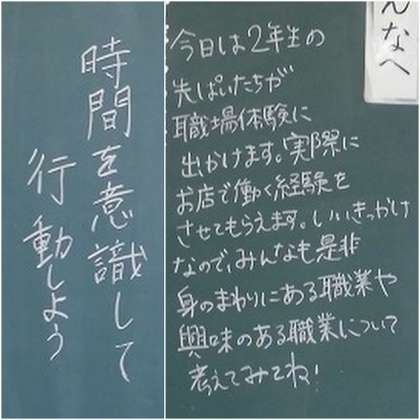 時間を意識して
行動しよう
んなへ
今日は2年生の
先ぱいたちが
職場体験に
出かけます。実際に
お店で働く経験を
させてもらえます。いいきっかけ
なので、みんなも是非
身のまわりにある職業や
興味のある職業について
考えてみてね!